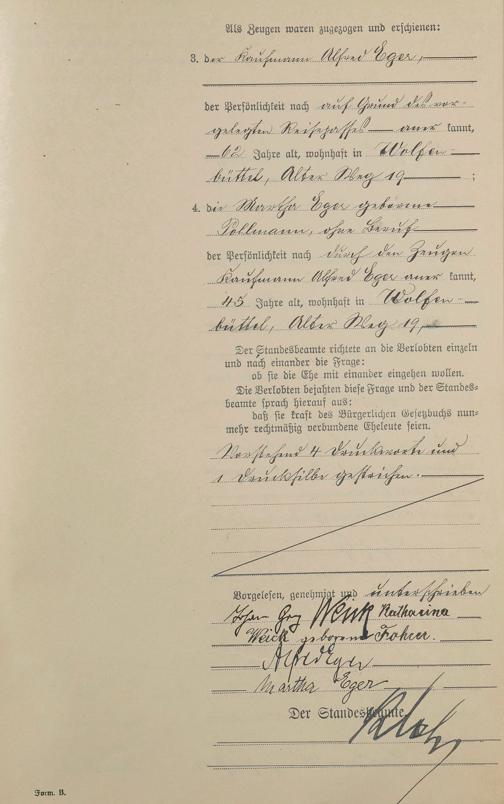 Als Zeugen waren zugezogen und erschienen:
3. der Kaufmann Alfred Eger,
der Persönlichkeit nach auf Grund des vor-
gelegten Reisepasses aner kannt,
62 Jahre alt, wohnhaft in Wolfen-
büttel, Alter Weg 19 ;
4. die Martha Eger geborene
Pollmann, ohne Beruf
der Persönlichkeit nach durch den Zeugen
Kaufmann Alfred Eger aner kannt,
45 Jahre alt, wohnhaft in Wolfen-
büttel, Alter Weg 19,
Der Standesbeamte richtete an die Verlobten einzeln
und nach einander die Frage:
ob sie die Ehe mit einander eingehen wollen.
Die Verlobten bejahten diese Frage und der Standes-
beamte sprach hierauf aus:
daß sie kraft des Bürgerlichen Gesetzbuchs nun-
mehr rechtmäßig verbundene Eheleute seien.
Vorstehend 4 Druckworte und
1 Drucksilbe gestrichen.
Vorgelesen, genehmigt und unterschrieben
Johan Grg Weick Katharina
Weick geborene
Alfred Eger
Martha Eger
Der Standesbeamte
Form. B.